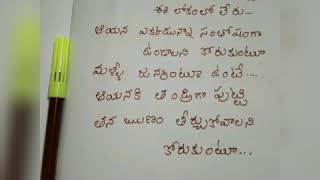 ఈ లోకంలో లేరు....
ఆయన ఎక్కడున్నా సంతోషంగా
ఉండాలని కోరుకుంటూ
మళ్ళీ జన్మంటూ ఉంటే....
ఆయనకి తండ్రిగా పుట్టి
తన ఋణం తీర్చుకోవాలని
కోరుకుంటూ...